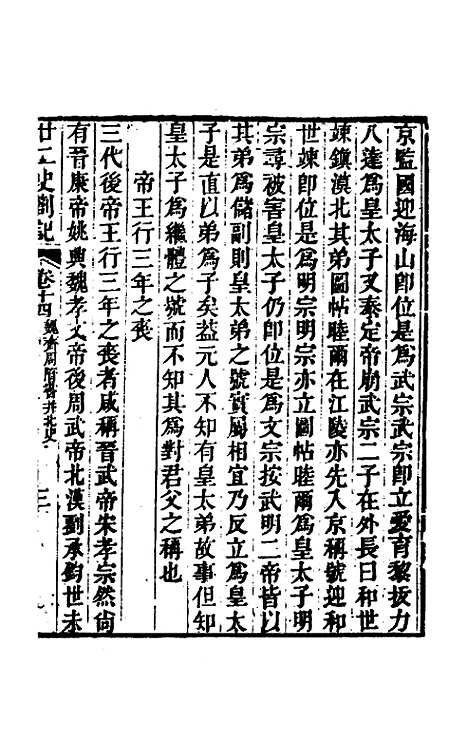 京監國迎海山卽位是爲武宗武宗卽立愛育黎拔力
八達爲皇太子又泰定帝崩武宗二子在外長曰和世
㻋鎮漠北其弟圖帖睦爾在江陵亦先入京稱號迎和
世㻋卽位是爲明宗明宗亦立圖帖睦爾爲皇太子明
宗尋被害皇太子仍卽位是爲文宗按武明二帝皆以
其弟爲儲副則皇太弟之號實屬相宜乃反立爲皇太
子是直以弟爲子矣葢元人不知有皇太弟故事但知
皇太子爲繼體之號而不知其爲對君父之稱也
帝王行三年之喪
三代後帝王行三年之喪者咸稱晉武帝宋孝宗然尙
有晉康帝姚興魏孝文帝後周武帝北漢劉承鈞世未
廿二史劄記 卷十四 魏齊周隋書并北史 三